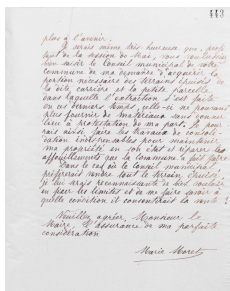 443
plus à l'avenir.
Je serais même très heureuse que, profitant de la session de Mai, vous vouliez
bien saisir le Conseil municipal de votre
commune de ma demande d'acquérir la
portion nécessaire des terrains épuisés de
la dite carrière et la petite parcelle
dans laquelle l'extraction s'est faite
en ces derniers temps, celle-ci ne pouvant
plus fournir de matériaux sans donner
lieu à protestation de ma part. Je pour-
rais ainsi, faire les travaux de consoli-
dation indispensables pour maintenir
ma propriété en bon état et réparer les
affouillements que la commune a fait faire.
Dans le cas où le Conseil municipal
préférerait vendre tout le terrain épuisé,
je lui serais reconnaissante de bien vouloir
en fixer les limites et de me faire savoir à
quelle condition il consentirait la vente !
Veuillez agréer, Monsieur le
Maire, l'assurance de ma parfaite
considération
Marie Moret